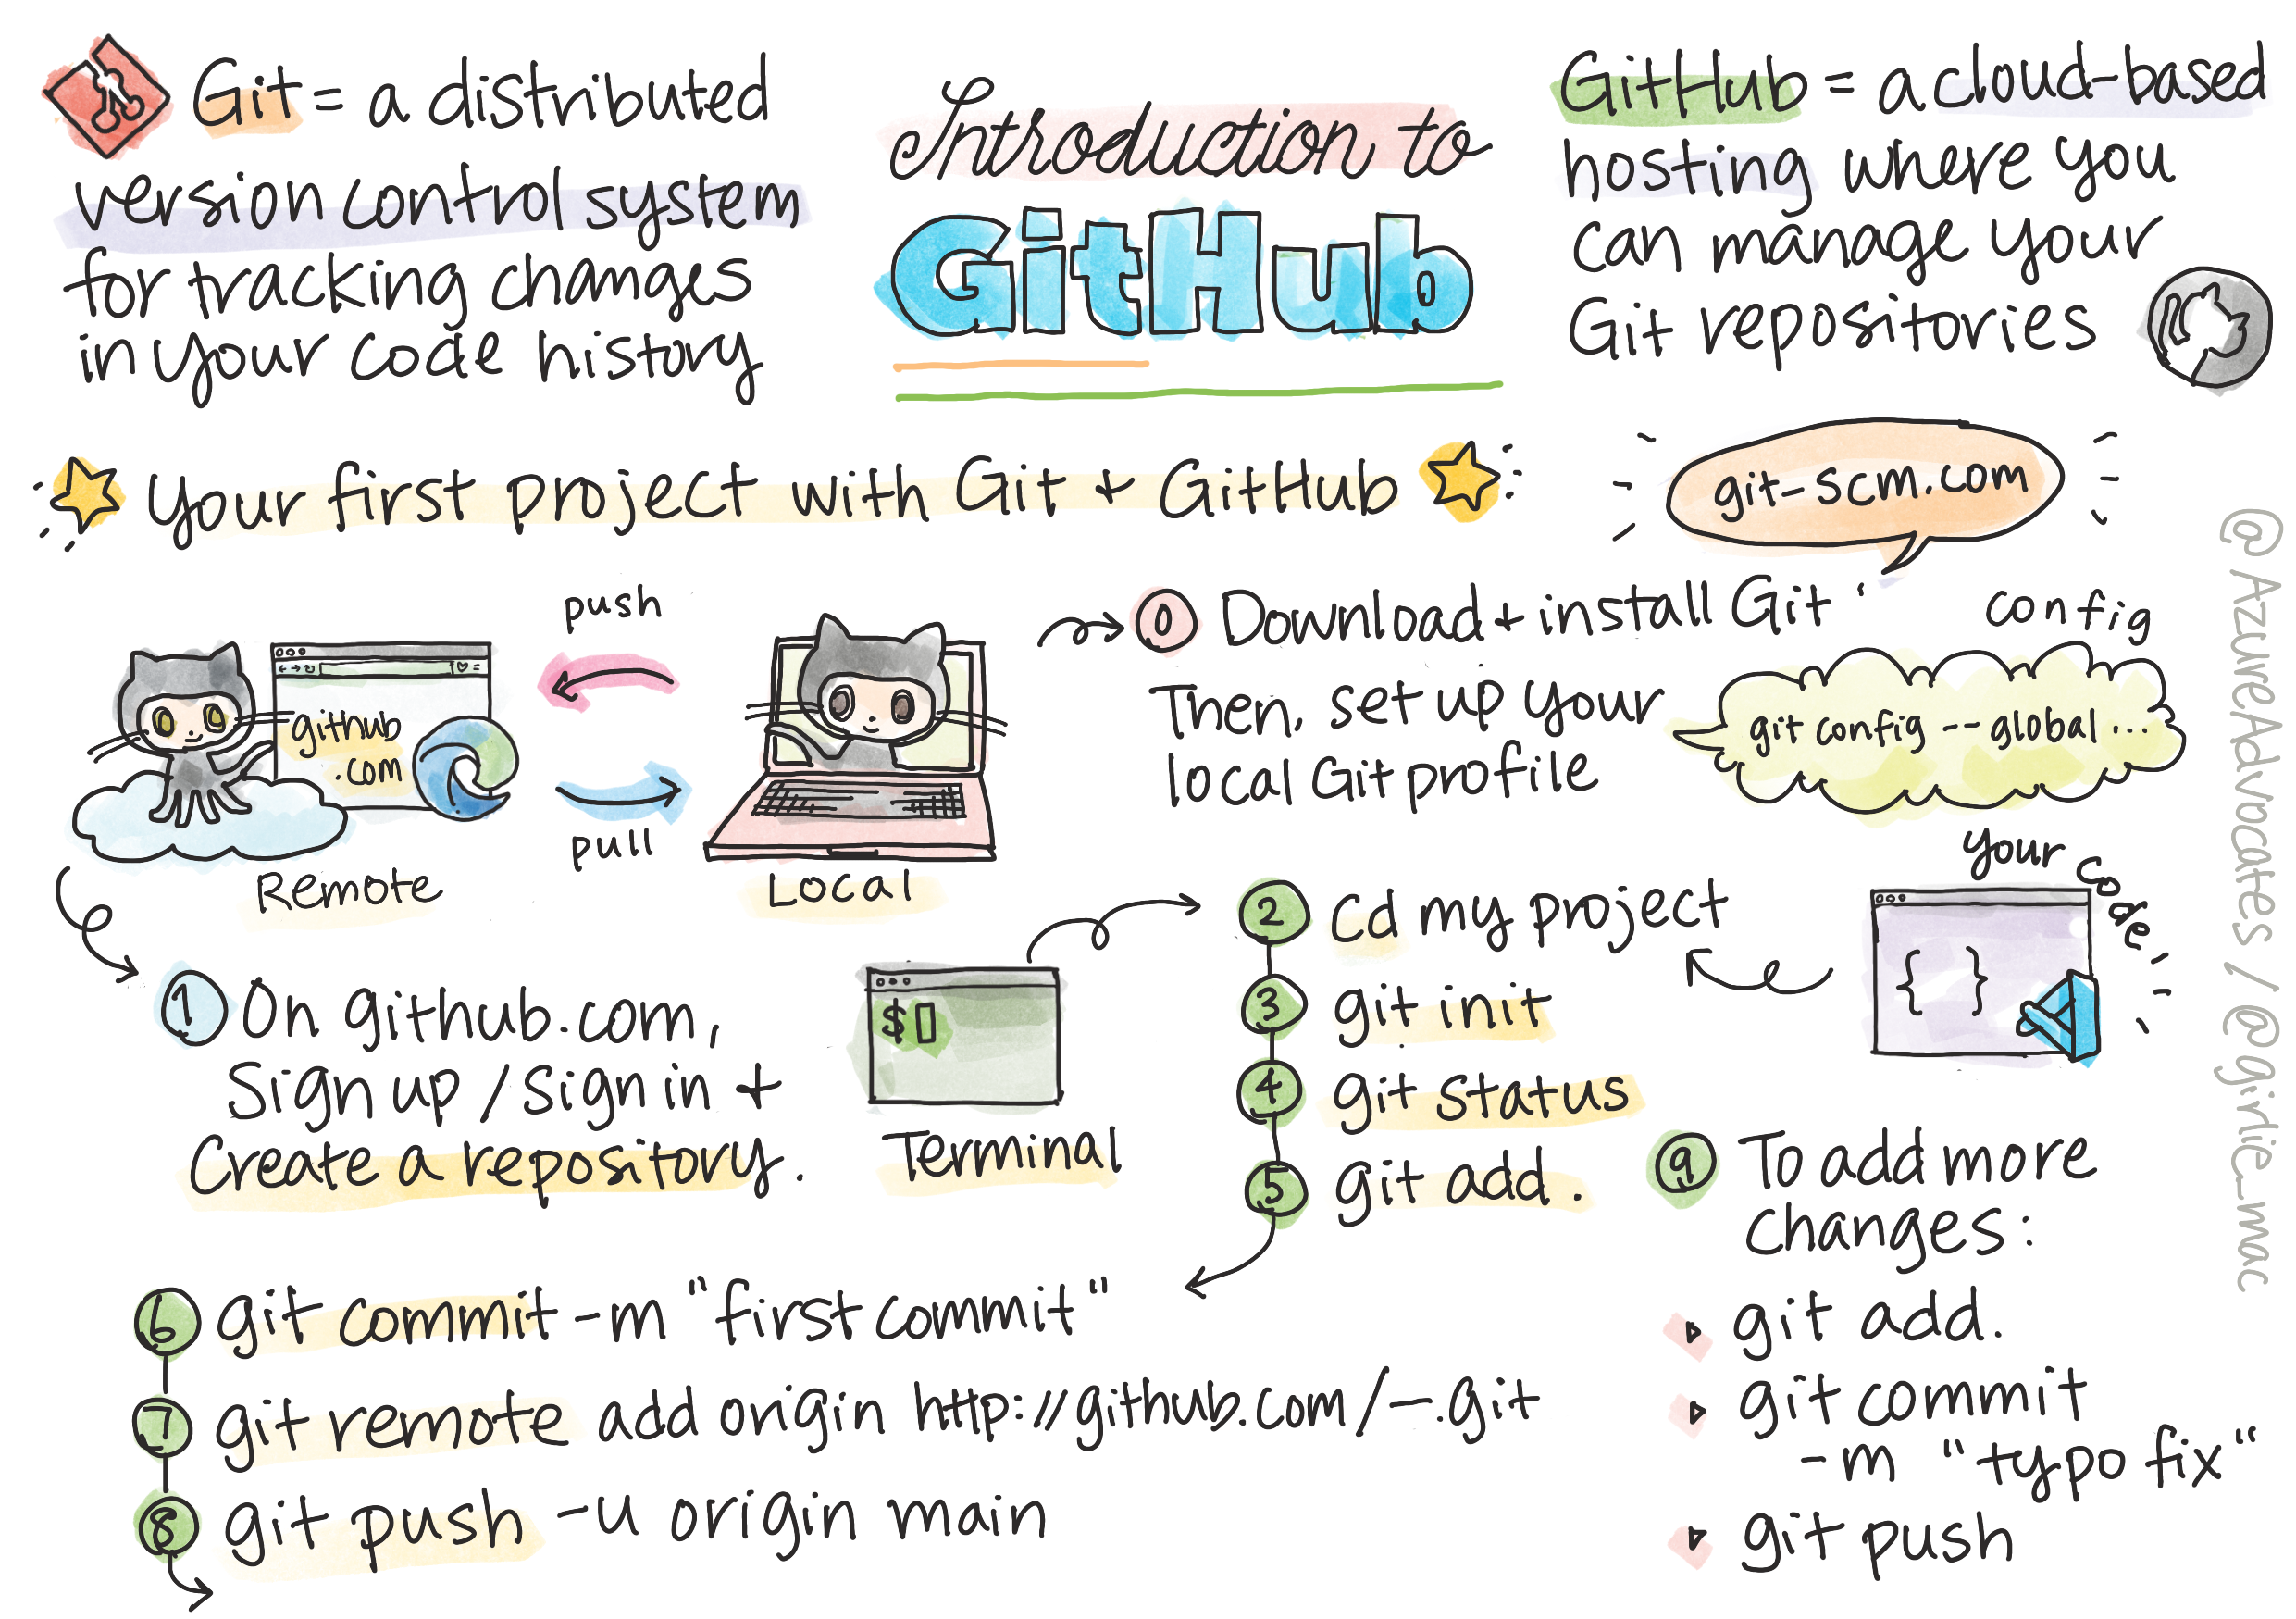 Git = a distributed
version control system
for tracking changes
in your code history
Introduction to
GitHub
GitHub = a cloud-based
hosting where you
can manage your
Git repositories
Your first project with Git + GitHub
git-scm.com
push
github
.com
pull
Remote
Local
0 Download + install Git
Then, set up your
local Git profile
config
git config --global ...
1 On github.com,
Sign up / Sign in +
Create a repository.
$
Terminal
2 cd my project
3 git init
4 git status
5 git add .
your code
{ }
6 git commit -m "first commit"
7 git remote add origin http://github.com/–.git
8 git push -u origin main
9 To add more
changes:
git add.
git commit
-m "typo fix"
git push
@AzureAdvocates / @girlie_mac